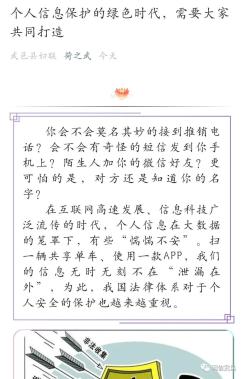 个人信息保护的绿色时代，需要大家
共同打造
武邑县妇联 荷之武 今天
你会不会莫名其妙的接到推销电
话？会不会有奇怪的短信发到你手
机上？陌生人加你的微信好友？更
可怕的是，对方还是知道你的名
字？
在互联网高速发展、信息科技广
泛流传的时代，个人信息在大数据
的笼罩下，有些“惴惴不安”。扫
一辆共享单车、使用一款APP，我们
的信息无时无刻不在“泄漏在
外”，为此，我国法律体系对于个
人安全的保护也越来越重视。
非法收集